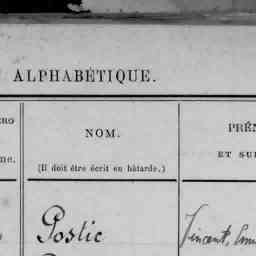 ALPHABÉTIQUE.
NOM.
(Il doit être écrit en bâtarde.)
PRÉN
ET SU
Postic
Vincent,